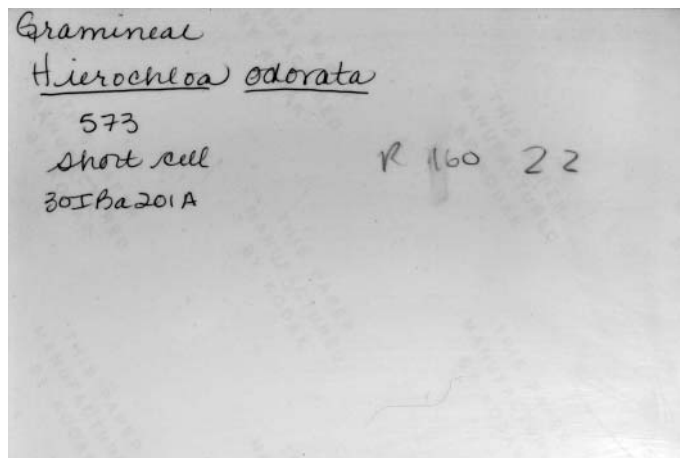 Gramineae
Hierochloa odorata
573
short cell
R 160 22
30IBa201A